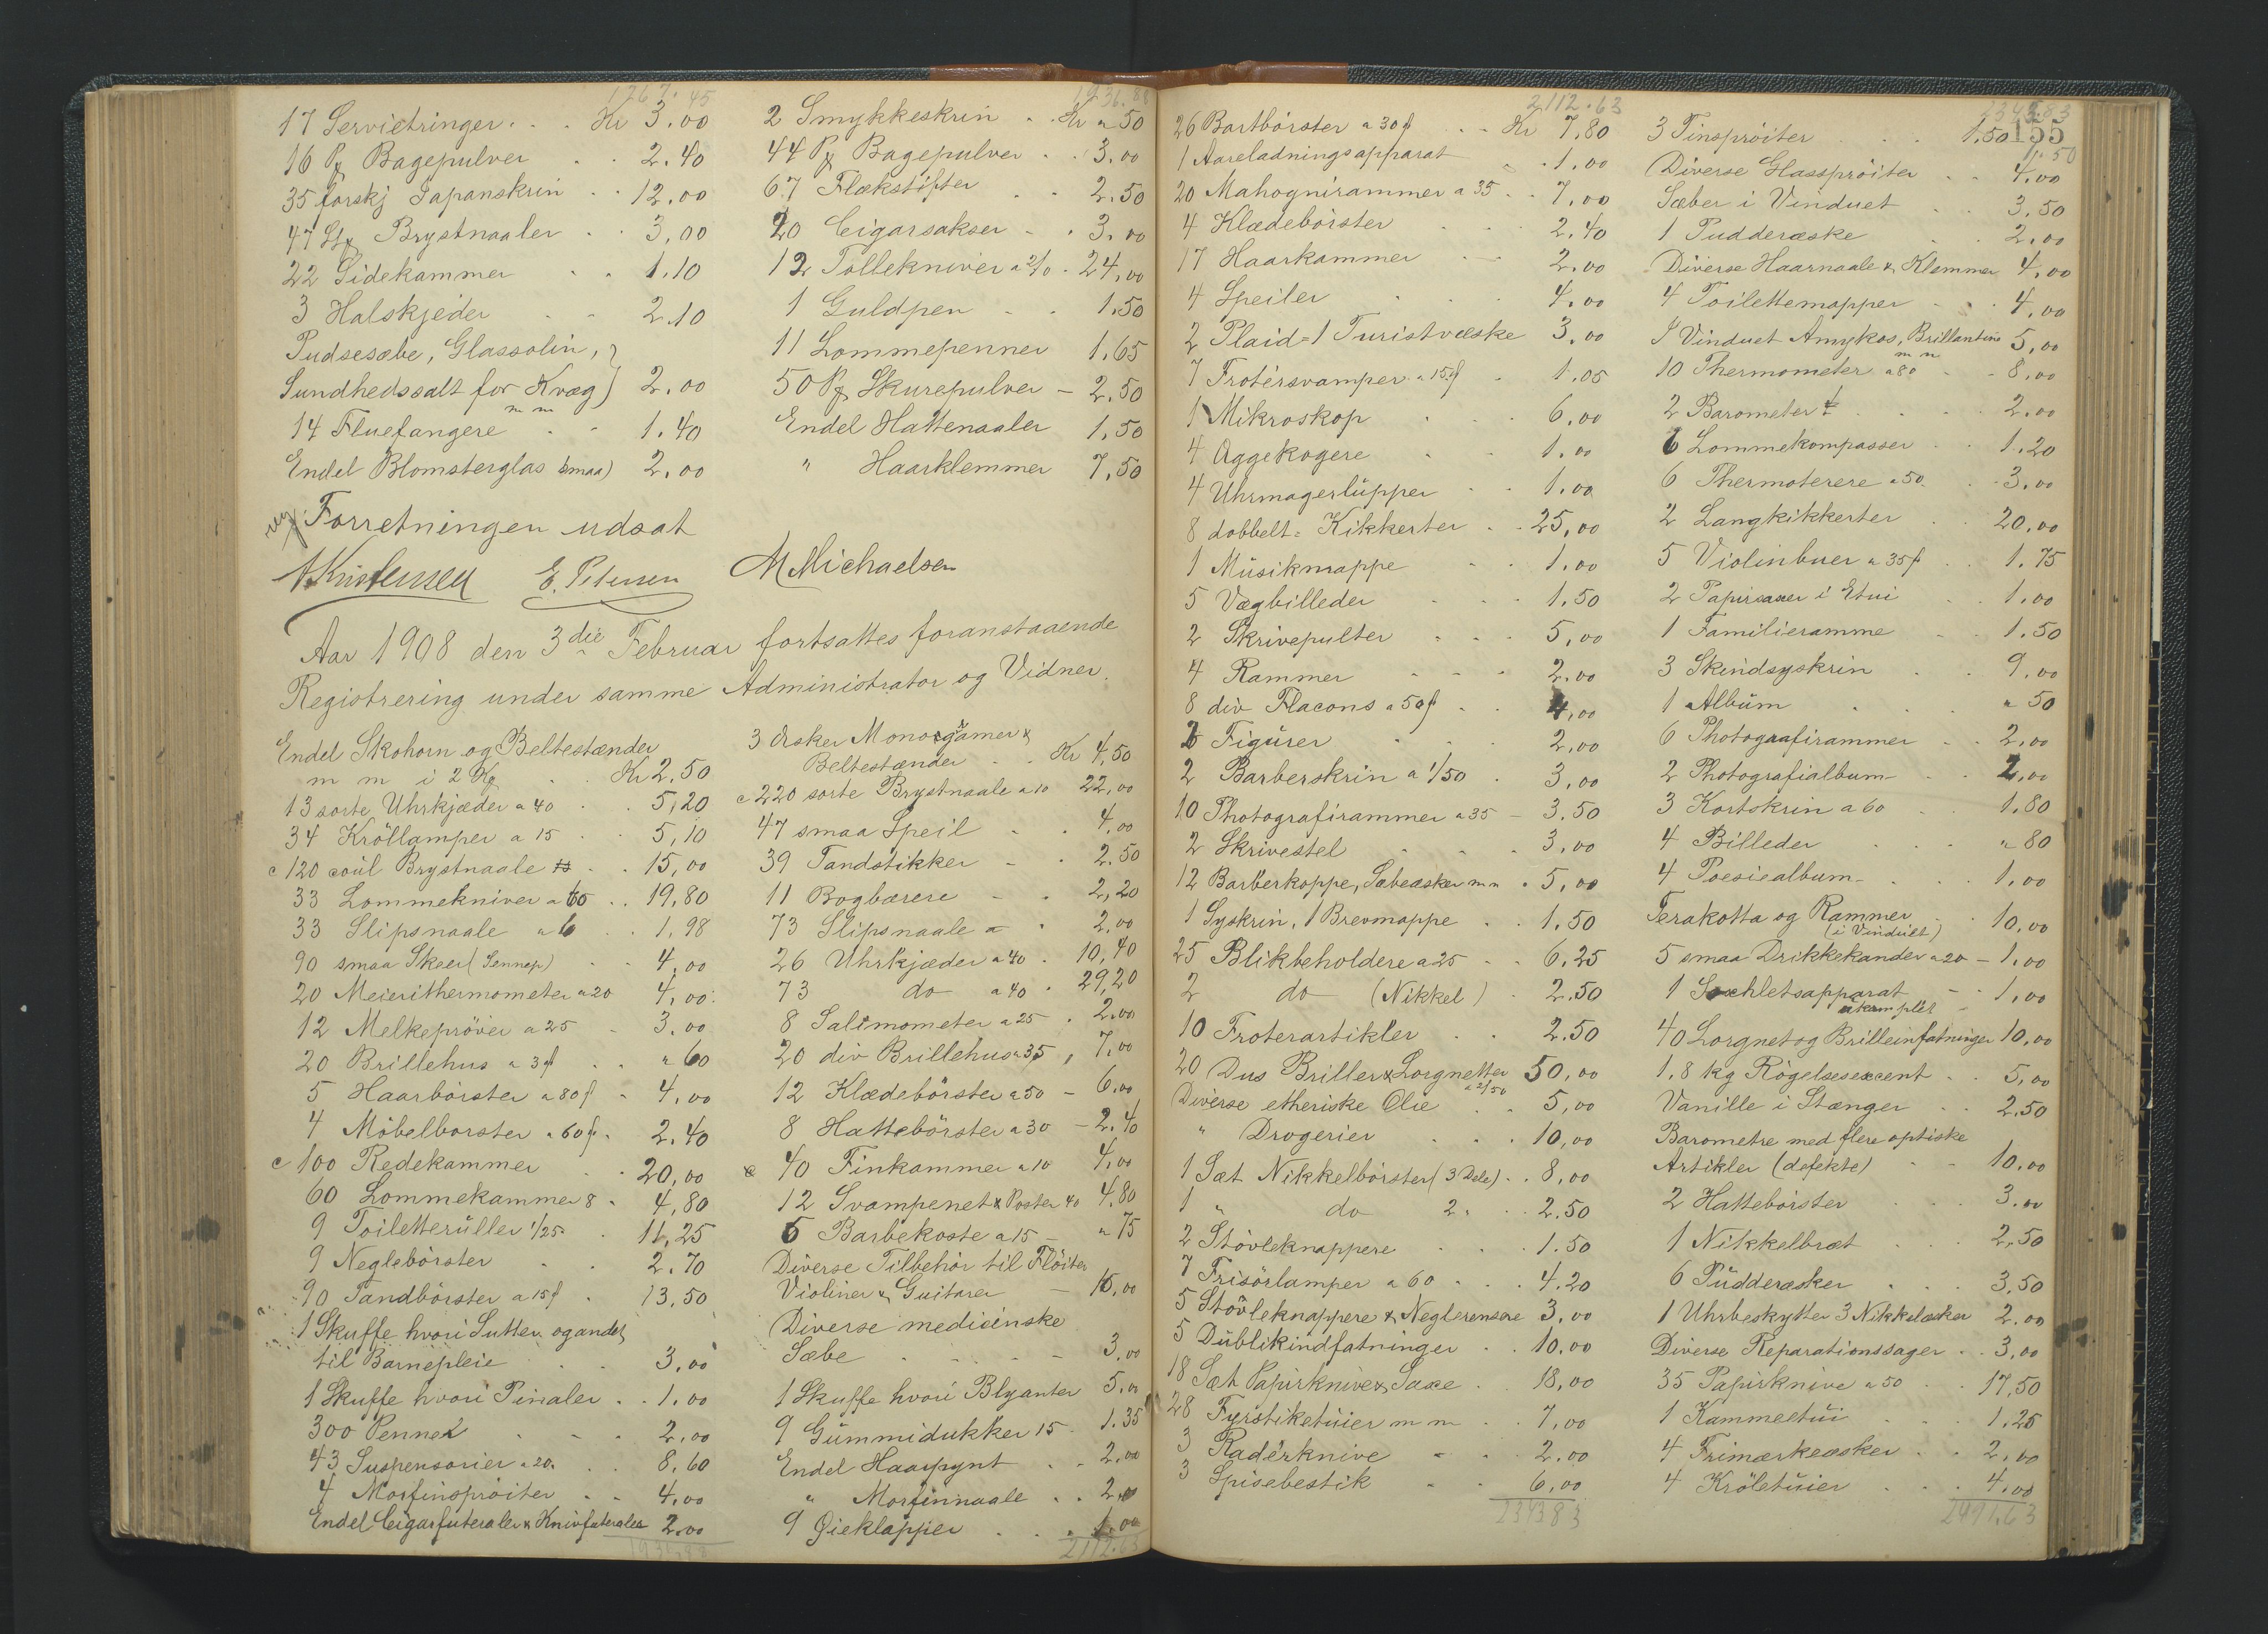 1267.45
17 Servietringer . . . Kr 3.00
16 Pk Bagepulver . . 2.40
35 forskj Japanskrin . . 12.00
47 Stk Brystnaaler . . 3,00
22 Sidekammer . . 1.10
3 Halskjeder . . 2.10
Pudsesæbe, Glassolin,
Sundhedssalt for Kvæg) 2.00
m m
14 Fluefangere . . 1.40
Endel Blomsterglas (smaa) 2.00
1936.88
2 Smykkeskrin . . Kr " 50
44 Pk Bagepulver . . 3.00
67 Flækstifter . . 2.50
20 Cigarsakser . . 3.00
12 Tollekniver a 2/0 . 24,00
1 Guldpen . . 1.50
11 Lommepenner 1.65
50 Pk Skurepulver - 2.50
Endel Hattenaaler 1,50
" Haarklemmer 7,50
Forretningen udsat
A Kristensen E. Petersen M Michaelsen
Aar 1908 den 3die Februar fortsattes foranstaaende
Registrering under samme Administrator og Vidner.
Endel Skohorn og Beltestænder
m m i 2 Kg . Kr 2.50
13 sorte Uhrkjæder a 40 . . 5,20
34 Kröllamper a 15 . . 5,10
c 120 coul Brystnaale . . 15,00
33 Lommekniver a 60 . . 19,80
33 Slipsnaale a 6 . . 1,98
90 smaa Skeer (Sennep) . . 4,00
20 Meierithermometer a 20 4,00
12 Melkepröver a 25 - 3.00
20 Brillehus a 3 . . " 60
5 Haarbörster a 80 . 4,00
4 Möbelborster a 60 . 2.40
c 100 Redekammer . . 20,00
60 Lommekammer 8 . 4,80
9 Toiletterüller 1/25 . 11,25
9 Neglebörster . . 2.70
90 Tandbörster a 15 . 13,50
1 Skuffe hvori Sutter og andet
til Barnepleie . . 3,00
1 Skuffe hvori Pinaler . . 1.00
300 Penner . . . 2.00
43 Suspensorier a 20 . . 8.60
4 Morfinspröiter . . 4,00
Endel Cigarfuteraler & Knivfuteraler 2.00
1934.88
3 Æsker Monogramer &
Beltestænder . . Kr 4,50
c 220 sorte Brystnaale a 10 22,00
47 smaa Speil . . 4,00
39 Tandstikker - . 2.50
11 Bogbærere - . 2,20
73 Slipsnaale a . 2,00
26 Uhrkjæder a 40 . 10,40
73 do a 40 . 29,20
8 Salimometer a 25 . 2.00
20 div Brillehus a 35 , 7,00
12 Klædebörster a 50 - 6,00
8 Hattebörster a 30 - 2.40
c 40 Finkammer a 10 4,00
12 Svampenet & Poster 40 4.80
5 Barbekoste a 15 - " 75
Diverse Tilbehör til Flöiter
Violiner & Guitarer - 10,00
Diverse medicinske
Sæbe . . . . - 3,00
1 Skuffe hvori Blyanter 5,00
9 Gümmidukker 15 . 1.35
Endel Haarpynt . . 2,00
" Morfinnaale . . 2,00
9 Öieklapper . . . 1.00
2112.63
2112.63
26 Bartbörster a 30 . . Kr 7,80
1 Aareladningsapparat . . 1.00
20 Mahognirammer a 35 . . 7,00
4 Klædebörster . . 2.40
17 Haarkammer . . 2.00
4 Speiler . . . 4.00
2 Plaid=1 Turistvæske 3.00
7 Frotersvamper a 15 . 1.05
1 Mikroskop . . 6.00
4 Æggekogere . . 1.00
4 Uhrmagerlüpper . . 1.00
8 dobbelt= Kikkerter . . 25,00
1 Müsikmappe . . 1.00
5 Vægbilleder . . 1.50
2 Skrivepulter . . . 5,00
4 Rammer . . . 2.00
8 div Flacons a 50 . . 4,00
2 Figürer . . 2,00
2 Barberskrin a 1/50 . 3,00
10 Photografirammer a 35 - 3.50
2 Skrivestel . . . 3,00
12 Barberkoppe, Sæbeæsker m.m . 5,00
1 Syskrin, 1 Brevmappe . . 1.50
25 Blikbeholdere a 25 . . 6.25
2 do (Nikkel) . 2.50
10 Froterartikler . . 2.50
20 Dus Briller & Lorgnetter 50,00
a 2/50
Diverse etheriske Olie . . 5,00
" Drogerier . . . 10,00
1 Sæt Nikkelbörster (3 Dele) . . 8,00
1 " do 2 " . . 2.50
2 Stövleknappere . . . 1.50
7 Frisörlamper a 60 . . . 4.20
5 Stövleknappere & Neglerensere 3,00
5 Dublikindfatninger . . 10,00
18 Sæt Papirknive & Saxe . 18,00
28 Fyrstiketüier m m . . 7,00
3 Radérknive . . 2.00
3 Spisebestik . . 6,00
2343.83
2343.83
155
3 Tinspröiter . . . 1,50
1.50
Diverse Glasspröiter . . 4.00
Sæber i Vinduet . . 3.50
1 Pudderæske . . 2.00
Diverse Haarnaale & Klemmer 4,00
4 Toilettemapper . . 4,00
I Vinduet Amykos, Brillantine 5,00
m m
10 Thermometer a 80 . . 8,00
2 Barometer . . . 2.00
6 Lommekompasser . . 1.20
6 Thermoterere a 50 . . 3.00
2 Langkikkerter . . 20,00
5 Violinbuer a 35 . . 1.75
2 Papirsaxer i Etui . . 1.00
1 Familieramme . . 1.50
3 Skindsyskrin . . 9,00
1 Albüm . . . " 50
6 Photograafirammer . . 2,00
2 Photografialbum . . 2,00
3 Kortskrin a 60 . . 1.80
4 Billeder . . . " 80
4 Poesiealbum . . . 1,00
Terakotta og Rammer . . 10,00
(i Vindüet)
5 smaa Drikkekander a 20 - 1,00
1 Soxhletsapparat - - 1,00
ükomplet
40 Lorgnet og Brilleinfatninger 10,00
1.8 kg Rögelsesexcent . . 5,00
Vanille i Stænger . . 2.50
Barometre med flere optiske
Artikler (defekte) . . 10.00
2 Hattebörster . . . 3.00
1 Nikkelbræt . . . 2.50
6 Püdderæsker . . 3,50
1 Uhrbeskytter 3 Nikkelæsker 2.00
Diverse Reparationssager . . 3,00
35 Papirknive a 50 . . 17,50
1 Kammeetüi . . . 1,25
4 Frimærkeæsker . . 2,00
4 Kröletüier . . . 4,00
2491.63